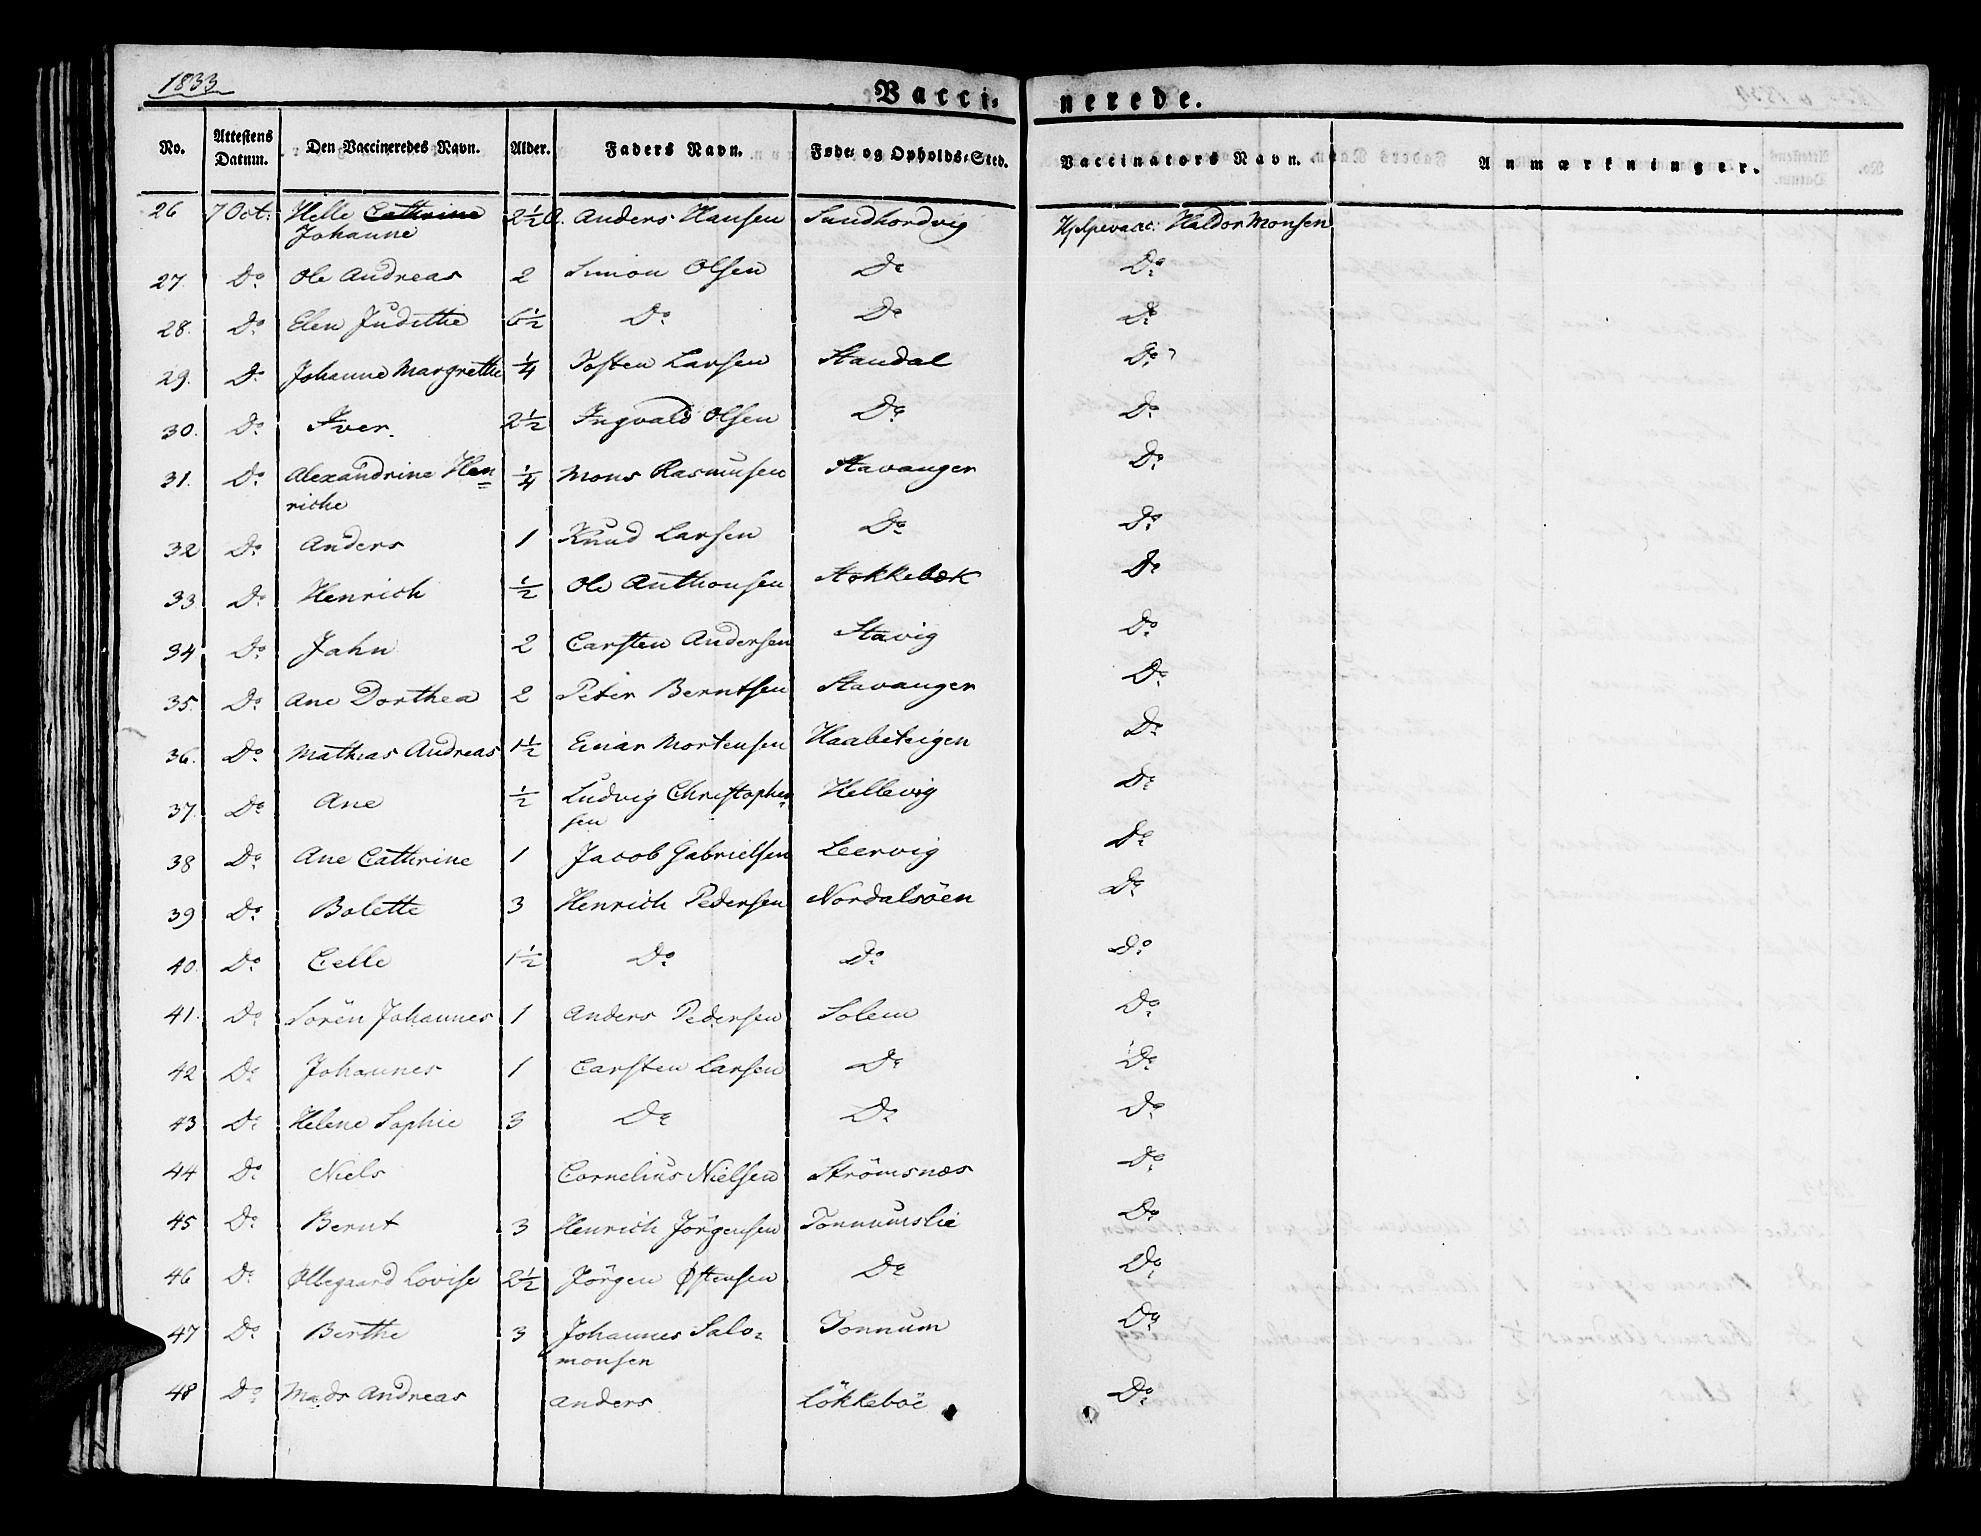 1833
Vaccinerede.
No. Attestens Datum. Den Vaccineredes Navn. Alder. Faders Navn. Føde- og Opholds-Sted. Vaccinators Navn. Anmærkninger.
26 7 Oct: Helle Cathrine 2½ A. Anders Hansen Sundhordvig Hjelpevacc: Haldor Monsen
Johanne
27. Do Ole Andreas 2 Simon Olsen Do Do
28. Do Elen Judithe 6½ Do Do Do
29. Do Johanne Margrethe ¼ Tosten Larsen Standal Do
30. Do Iver. 2½ Ingvald Olsen Do Do
31. Do Alexandrine Hen= ¼ Mons Rasmusen Stavanger Do
riche
32 Do Anders 1 Knud Larsen Do Do
33 Do Henrich ½ Ole Anthonsen Stokkebæk Do
34 Do Jahn 2 Carsten Andersen Stavig Do
35. Do Ane Dorthea 2 Peter Berntsen Stavanger Do
36. Do Mathias Andreas 1½ Einar Mortensen Haabeteigen Do
37. Do Ane ½ Ludvig Christophen= Hellevig Do
sen
38 Do Ane Cathrine 1 Jacob Gabrielsen Leervig Do
39 Do Bolette 3 Henrich Pedersen Nordalsöen Do
40. Do Celle 1½ Do Do Do
41. Do Sören Johannes 1 Anders Pedersen Solem Do
42 Do Johannes 1 Carsten Larsen Do Do
43 Do Helene Sophie 3 Do Do Do
44 Do Niels Cornelius Nielsen Strömsnæs Do
45 Do Bernt 3 Henrich Jörgensen Tonnumslie Do
46 Do Øllegaard Lovise 2½ Jörgen Østensen Do Do
47 Do Berthe 3 Johannes Salo= Tonnum Do
monsen
48 Do Mads Andreas Anders Lökkeböe Do